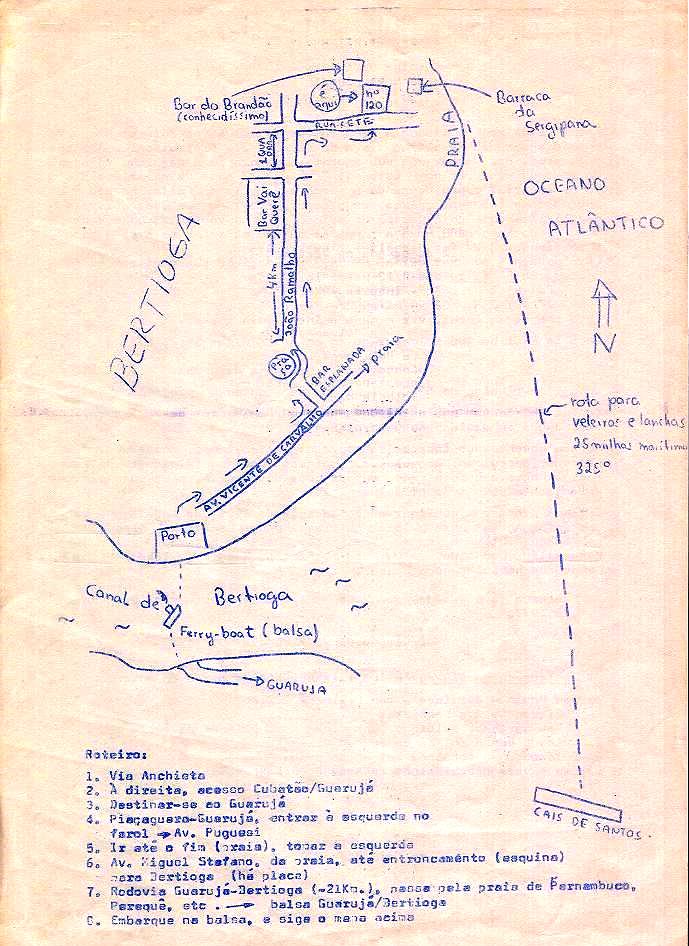 Bar do Brandão
(conhecidíssimo)
é
aqui
nº
120
Barraca
da
Sergipana
RUA SETE
PRAIA
OCEANO
ATLÂNTICO
Bar Vai
Querê
BERTIOGA
4Km
João Ramalho
N
BAR
ESPLANADA
praia
rota para
veleiros e lanchas
25 milhas marítima
325º
AV. VICENTE DE CARVALHO
Porto
Canal de
Bertioga
Ferry-boat (balsa)
GUARUJA
CAIS DE SANTOS.
Roteiro:
1. Via Anchieta
2. À direita, acesso Cubatão/Guarujá
3. Destinar-se ao Guarujá
4. Piaçaguera-Guarujá, entrar à esquerda no
farol → Av. Puguesi
5. Ir até o fim (praia), tomar à esquerda
6. Av. Miguel Stefano, da praia, até entroncamento (esquina)
para Bertioga (há placa)
7. Rodovia Guarujá-Bertioga (~21Km.), passa pela praia de Pernambuco,
Perequê, etc. → balsa Guarujá/Bertioga
8. Embarque na balsa, e siga o mapa acima